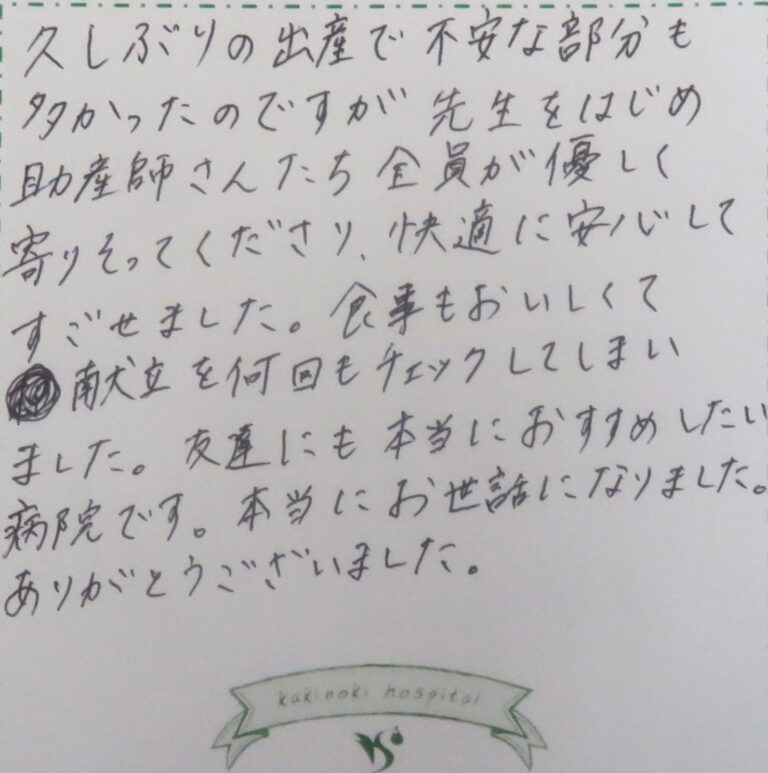 久しぶりの出産で不安な部分も
多かったのですが 先生をはじめ
助産師さんたち全員が優しく
寄りそってくださり、快適に安心して
すごせました。食事もおいしくて
献立を何回もチェックしてしまい
ました。友達にも本当におすすめしたい
病院です。本当にお世話になりました。
ありがとうございました。
kakinoki hospital